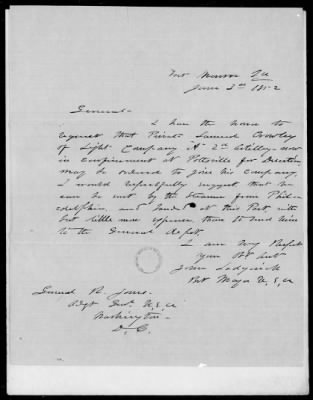 Fort Monroe Va
June 3rd 1852
General-
I have the honor to
request that Private Samuel Crowley
of Light Company "A" 2nd Artillery now
in confinement at Pottsville for Desertion
may be ordered to join his Company,
I would respectfully suggest that he
can be sent by the Steamer from Phil-
adelphia, and landed at this Post with
but little more expense than to send him
to the General depot.
I am Very Respect
Your Obt Servt
John Sedgwick
Bvt Major U.S.A
General R. Jones.
Adgt Genl U.S.A
Washington-
D.C.